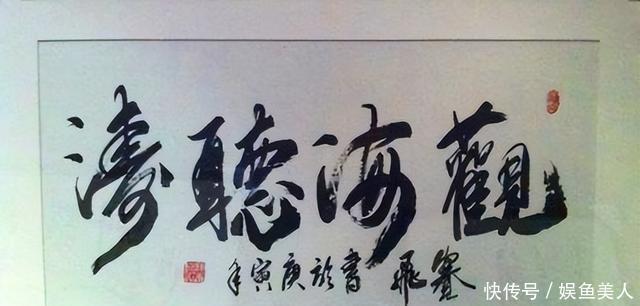 觀海聽濤
飛書於庚寅年
快传号 / 娱鱼美人